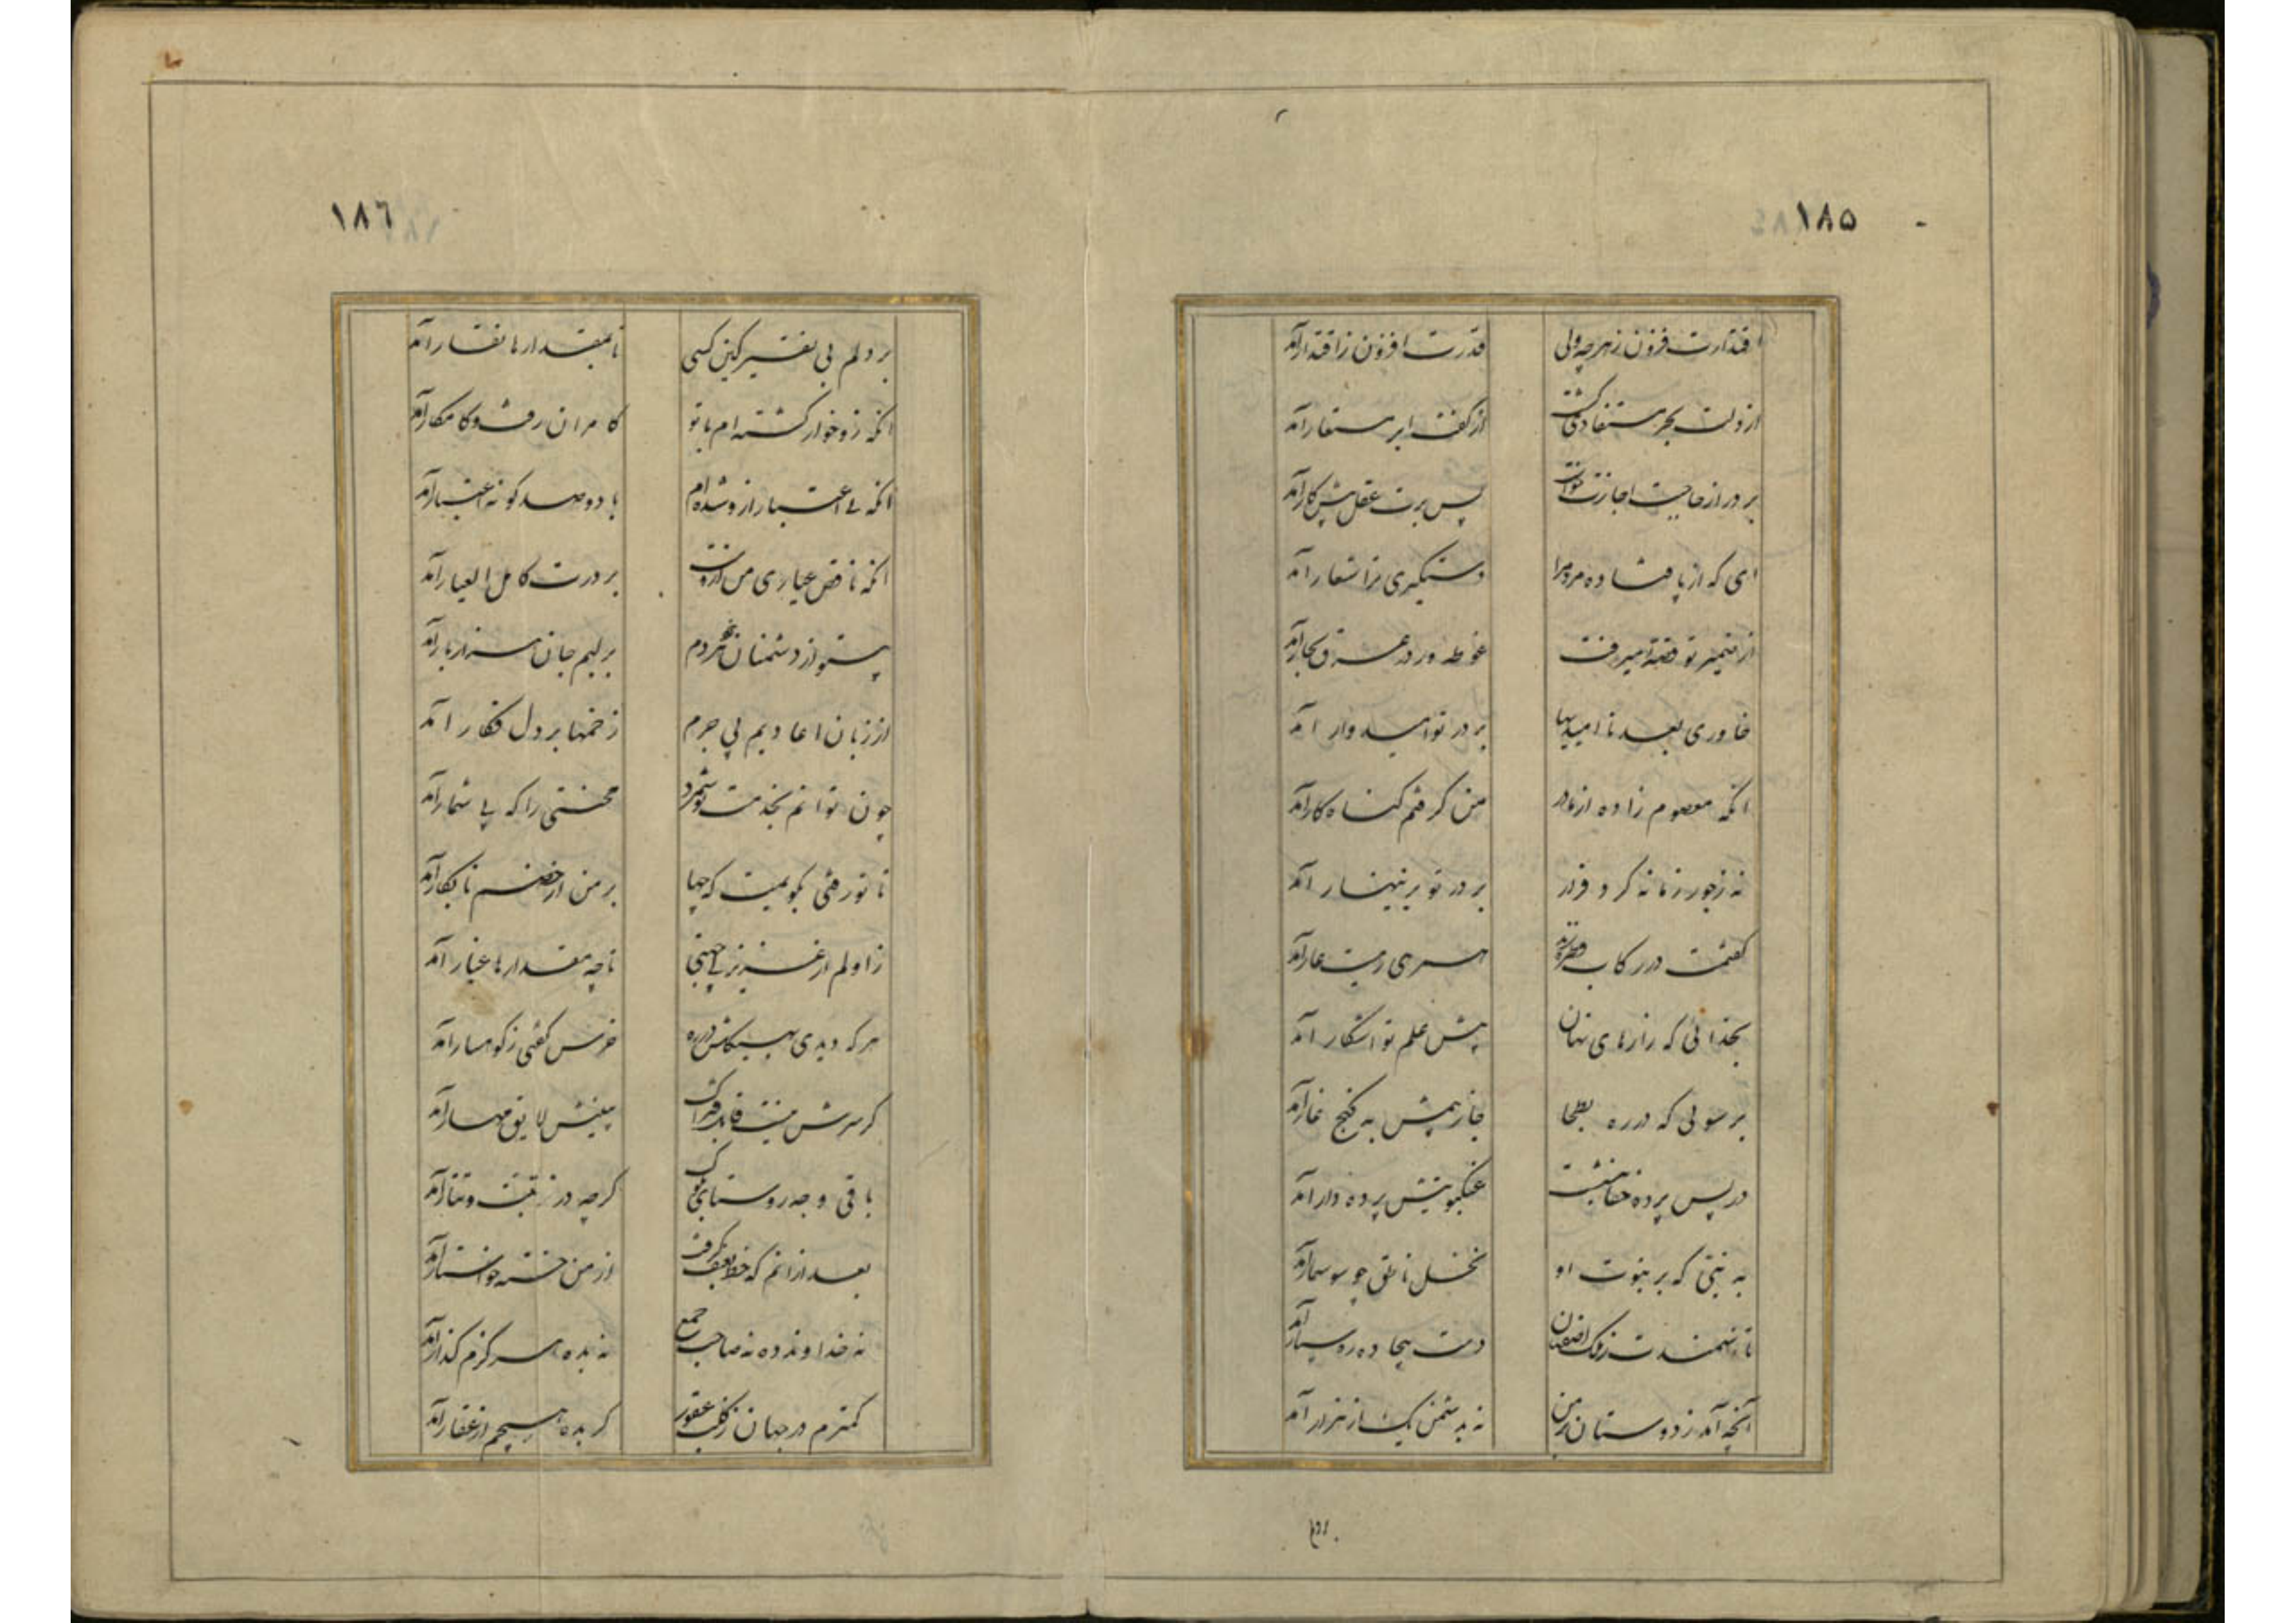 ١٨٥
اقتدارت فزون زهرچه ولی قدرت افزون ز اقتدار آمد
از دلت بحر مستفاد کشت از کفت ابر مستعار آمد
بر در از حاجت اجازت خواست پس برت عقل پیش کار آمد
ای که از پا فتاده مردم را دستگیری ترا شعار آمد
از ضمیر تو قصه میرفت غوطه ور در عرق بحار آمد
خاوری بعد ناامیدیها بر در تو امیدوار آمد
انکه معصوم زاده از مادر من کرفتم کناه کار آمد
نه ز جور زمانه کرد فرار بر در تو بزینهار آمد
کفتمت در رکاب همسری عار آمد
بخدائی که رازهای نهان پیش علم تو اشکار آمد
برسولی که در ره بطحا جا ز پیش به کنج غار آمد
در پس پرده خفا بنشست عنکبوتیش پرده دار آمد
به نبیّ که بر نبوت او نخل ناطق چو سوسمار آمد
تا دست بیجاده ره سپار آمد
آنچه آمد ز دوستان بر من نه بدشمن یک از هزار آمد
بردلم
١٨٦
بر دلم بی نقیر کین کسی تا بمقدارها نقار آمد
انکه زو خوار کشته ام با تو کامران رفت و کامکار آمد
انکه بی اعتبار ازو شده ام با دو صد کونه اعتبار آمد
انکه ناقص عیاری من ازوست بر درت کامل العیار آمد
بستوه از دشمنان نمردم بر لبم جان هزار بار آمد
از زبان اعادیم بی جرم زخمها بر دل فکار آمد
چون توانم بخدمت تو شمرد محنتی را که بی شمار آمد
تا تو رفتی بکویمت که چها بر من از خصم نابکار آمد
ز اولم از عزیز بی جهتی تا چه مقدارها غبار آمد
هر که دیدی به پیکش در ره خرس کفتی ز کوهسار آمد
کر سرش نیست قابل فتراک بینیش لایق مهار آمد
باقی وجه روستای کرچه در
بعد از انم که خط بعنف کرفت از من خسته خواستار آمد
نه خداوند ده نه صاحب جمع نه بده هر کزم کذار آمد
کمترم در جهان ز کلب عقور کر بده هیچم از عقار آمد